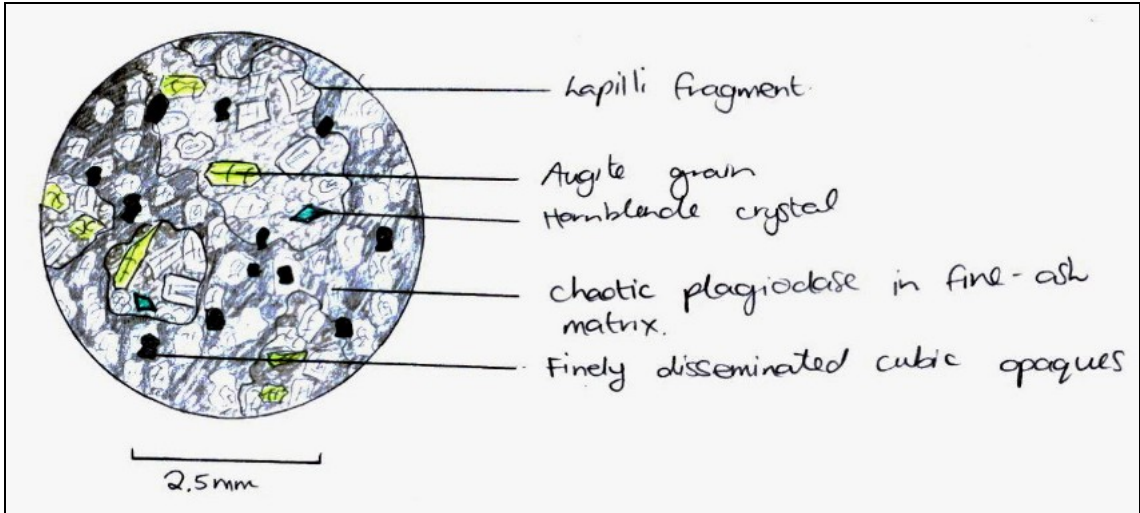 Lapilli fragment.
Augite grain
Hornblende crystal
chaotic plagioclase in fine-ash
matrix.
Finely disseminated cubic opaques
2.5mm